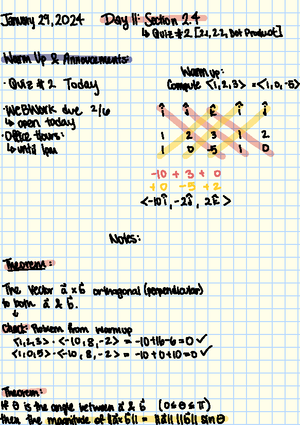 January 29, 2024 Day 11: Section 2.4
↳ Quiz #2 [2.1, 2.2, Dot Product]
Warm Up & Announcements:
· Quiz #2 Today
· WebWork due 2/6
↳ open today
· Office Hours:
↳ until 1pm
Warm up:
Compute <1,2,3> × <1,0,-5>
î ĵ k̂ î ĵ
1 2 3 1 2
1 0 -5 1 0
-10 + 3 + 0
+ 0 -5 + 2
<-10î, -2ĵ, 2k̂>
Notes:
Theorem:
The vector a⃗ × b⃗ orthogonal (perpendicular)
to both a⃗ & b⃗.
↓
Check: Problem from warmup
<1,2,3> · <-10, 8, -2> = -10+16-6=0 ✓
<1,0,5> · <-10, 8, -2> = -10+0+10=0 ✓
Theorem:
If θ is the angle between a⃗ & b⃗ (0≤θ≤π)
then the magnitude of ||a⃗×b⃗|| = ||a⃗|| ||b⃗|| sin θ